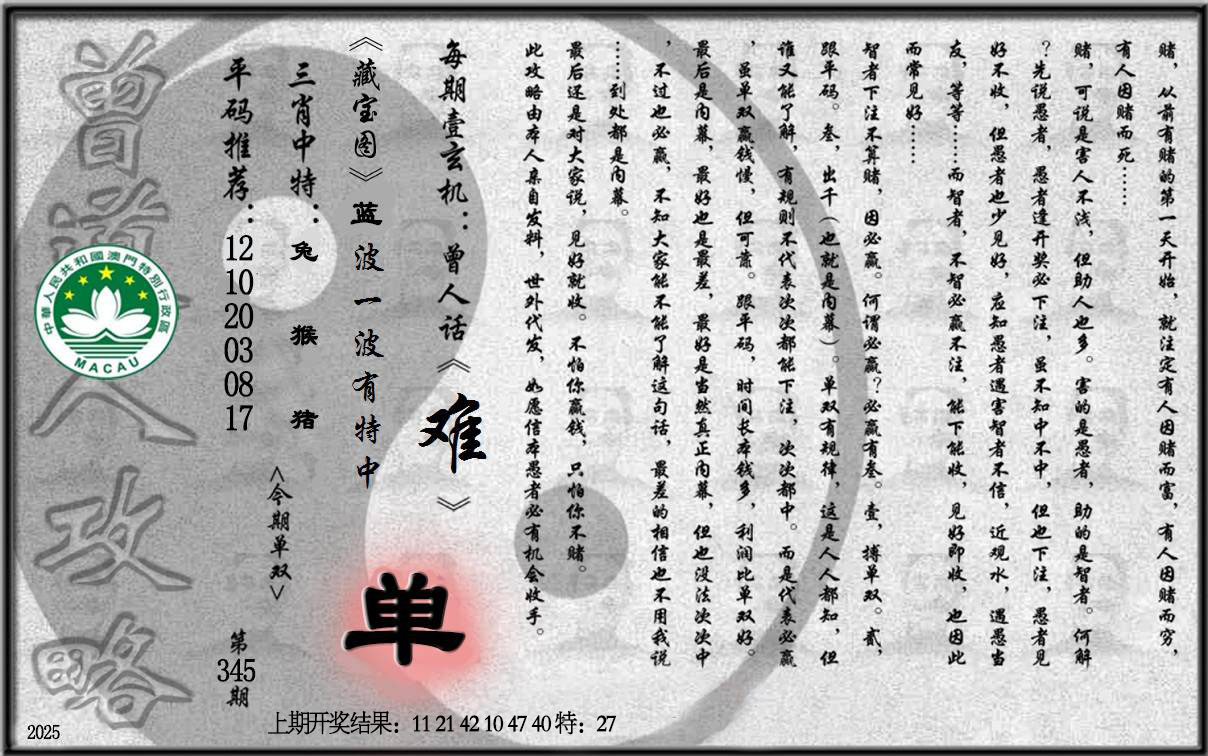 赌，从前有赌的第一天开始，就注定有人因赌而富，有人因赌而穷，
有人因赌而死……
赌，可说是害人不浅，但助人也多。害的是愚者，助的是智者。何解
？先说愚者，愚者逢开奖必下注，虽不知中不中，但也下注，愚者见
好不收，但愚者也少见好，应知愚者遇害智者不信，近观水，遇愚当
友，等等……而智者，不智必赢不注，能下能收，见好即收，也因此
而常见好……
智者下注不算赌，因必赢。何谓必赢？必赢有叁。壹，搏单双。贰，
跟平码。叁，出千（也就是内幕）。单双有规律，这是人人都知，但
谁又能了解，有规则不代表次次都能下注，次次都中。而是代表必赢
，虽单双赢钱慢，但可靠。跟平码，时间长本钱多，利润比单双好。
最后是内幕，最好也是最差，最好是当然真正内幕，但也没法次次中
，不过也必赢，不知大家能不能了解这句话，最差的相信也不用我说
……到处都是内幕。
最后还是对大家说，见好就收。不怕你赢钱，只怕你不赌。
此攻略由本人亲自发料，世外代发，如愿信本愚者必有机会收手。
每期壹玄机：曾人话《难》
《藏宝图》蓝波一波有特中
单
三肖中特：兔 猴 猪
<今期单双>
平码推荐：12 10 20 03 08 17
第345期
曾道人攻略
中華人民共和國澳門特別行政區
MACAU
上期开奖结果：11 21 42 10 47 40 特：27
2025